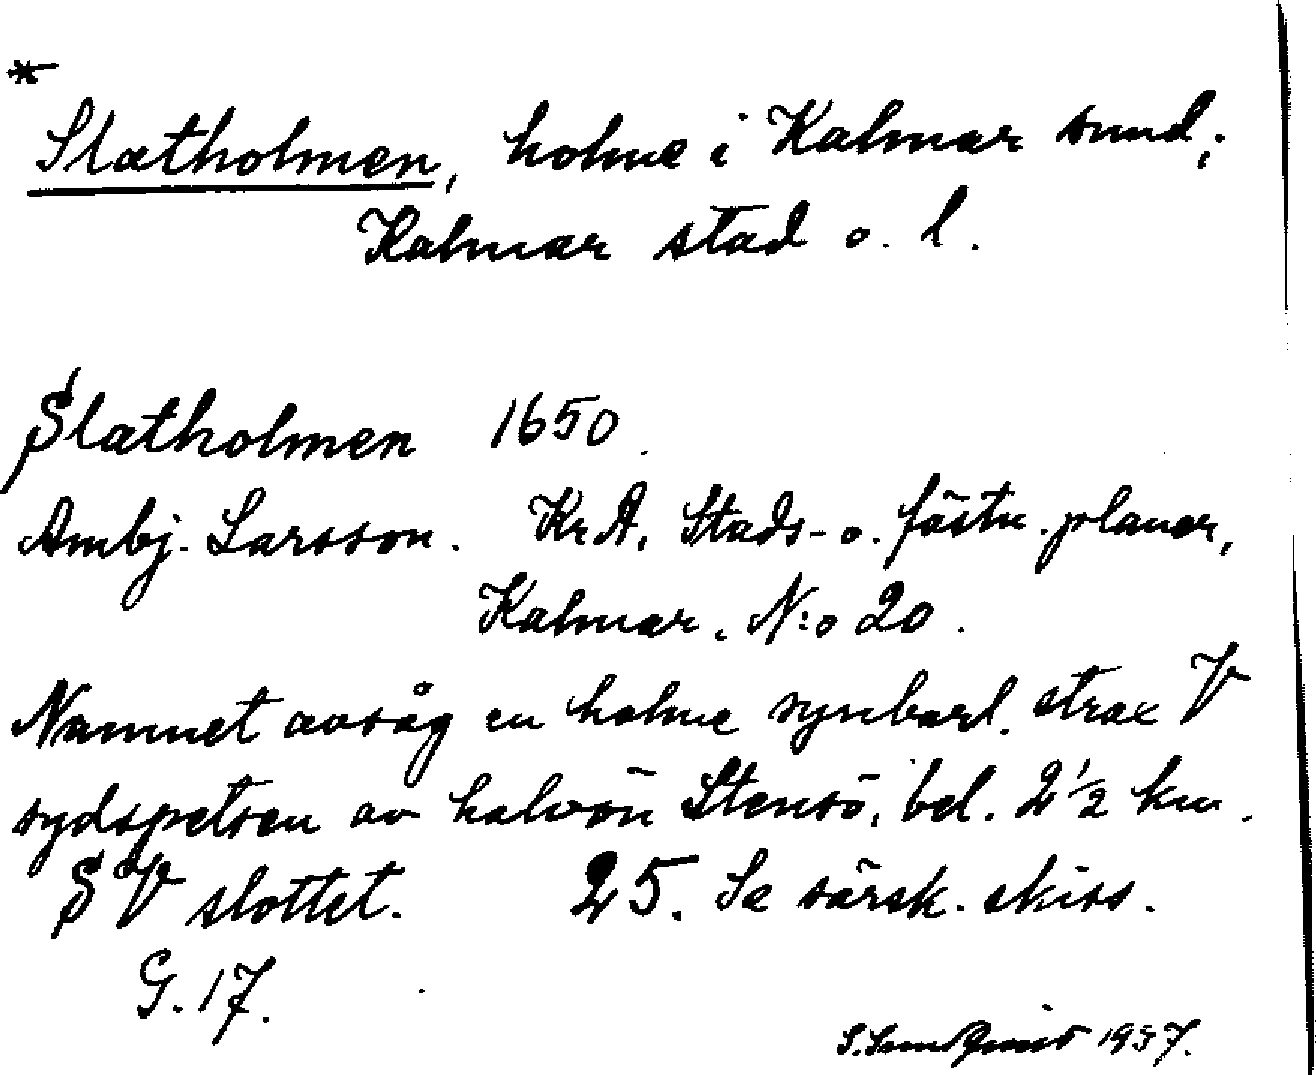 *
Slatholmen, holme i Kalmar sund;
Kalmar stad o. l.
Slatholmen 1650.
Ambj. Larsson. Kr.A. Stads- o. fästn. planer,
Kalmar. N:o 20.
Namnet avsåg en holme synbarl. strax V
sydspetsen av halvön Stensö, bel. 2 1/2 km.
SV slottet. 25. Se särsk. skiss.
G. 17.
S. Sundquist 1937.